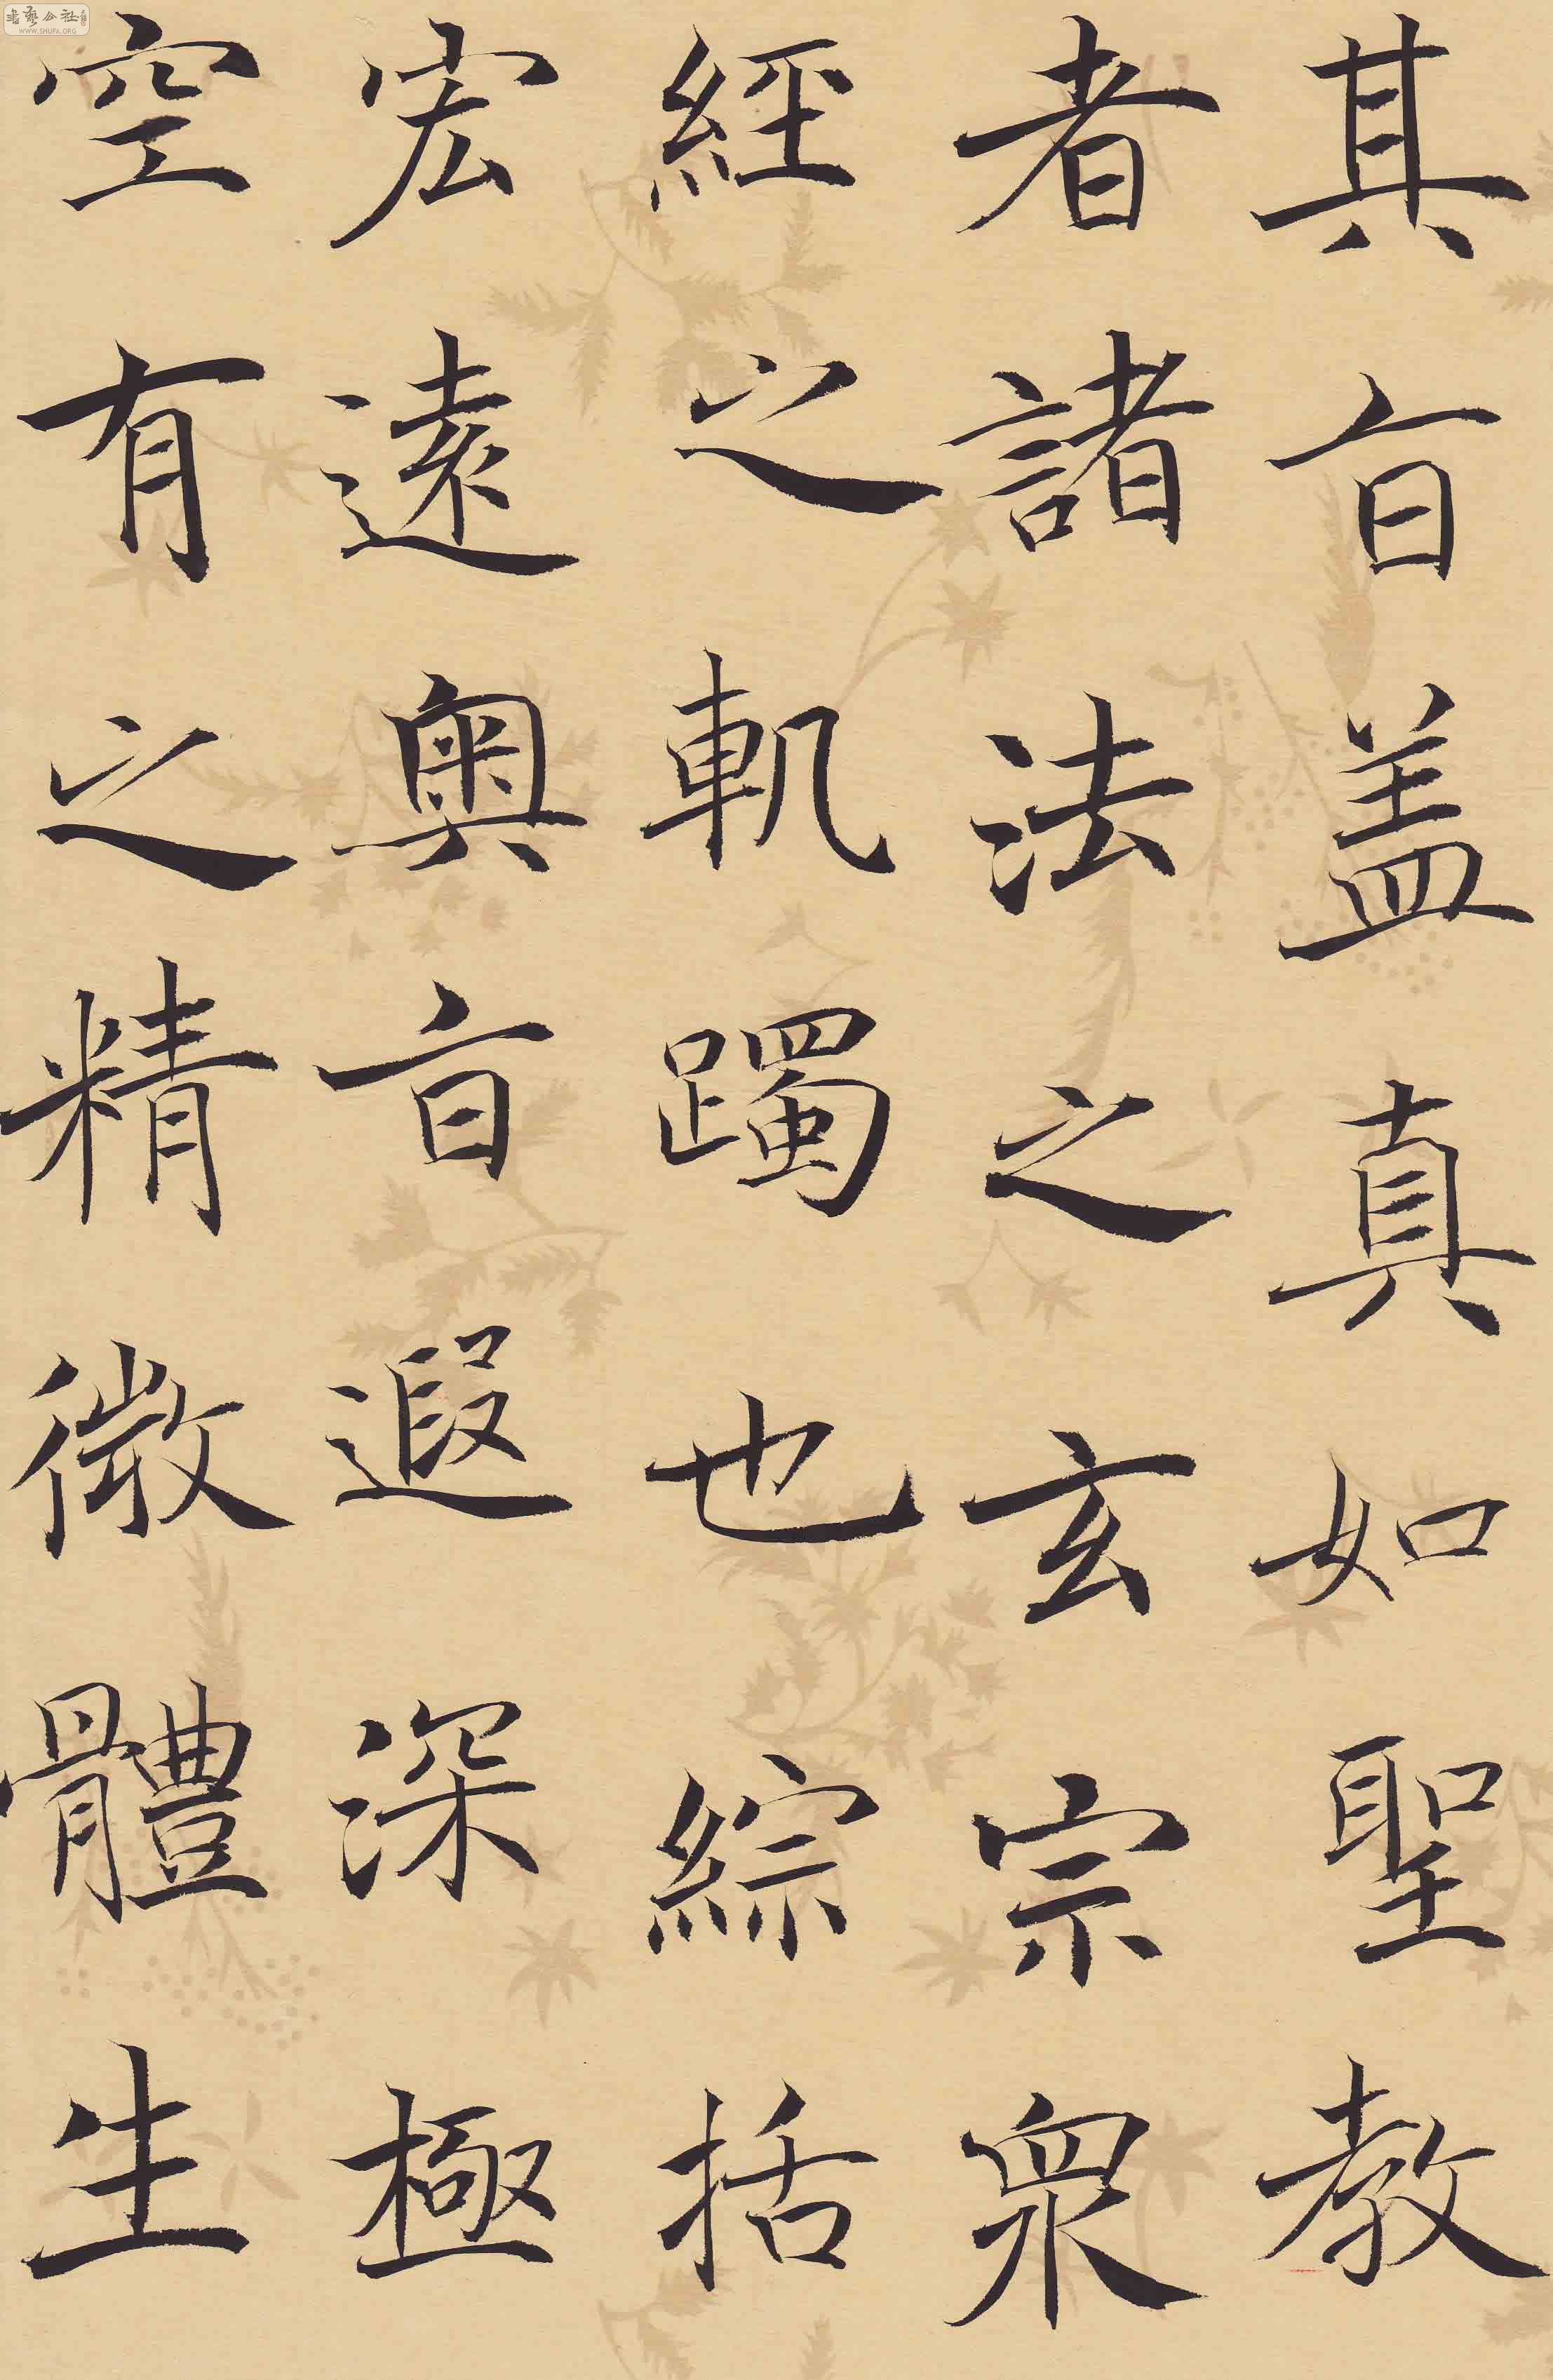 其旨盖真如聖教
者諸法之玄宗衆
經之軌躅也綜括
宏遠奥旨遐深極
空有之精微體生
WWW.SHUFA.ORG